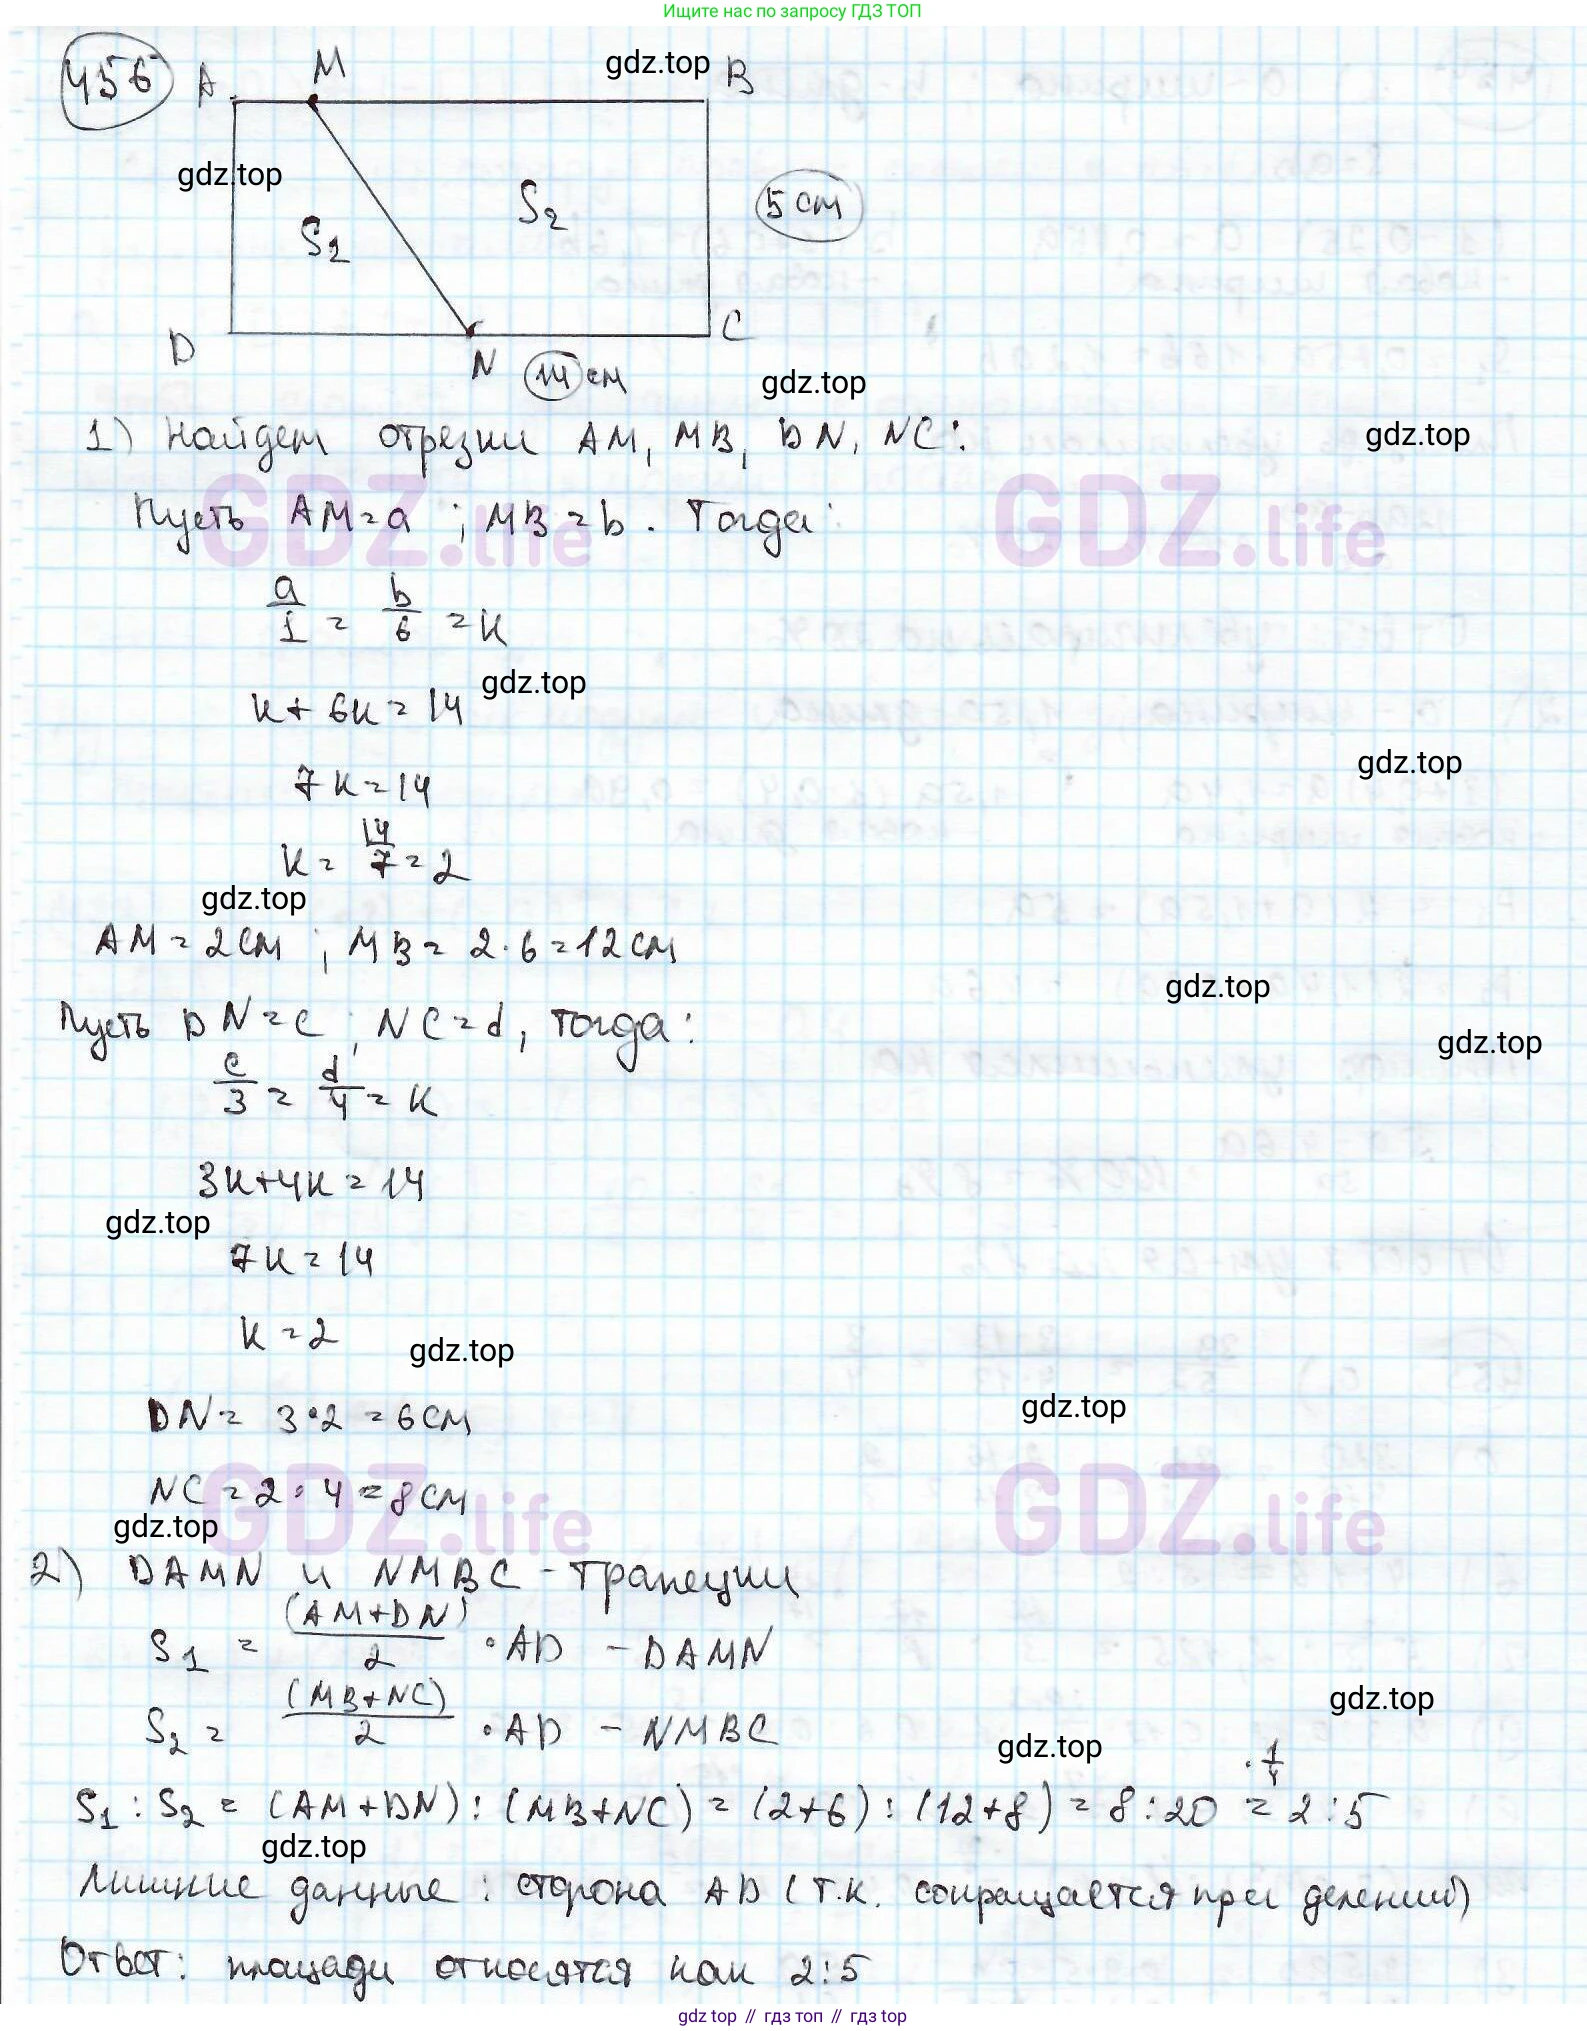 Ищите нас по запросу ГДЗ ТОП
456 A M gdz.top B
gdz.top
S1 S2 5 см
D N 14 см C
gdz.top
1) Найдем отрезки AM, MB, DN, NC:
gdz.top
GDZ.life GDZ.life
Пусть AM=a ; MB=b. Тогда:
a/1 = b/6 = к
к+6к=14
gdz.top
7к=14
gdz.top
к= 14/7 = 2
gdz.top
AM=2см ; MB= 2·6=12см
gdz.top
Пусть DN=c ; NC=d, тогда:
gdz.top
c/3 = d/4 = к
3к+4к=14
gdz.top
7к=14
к=2
gdz.top
DN= 3·2=6см
gdz.top
NC=2·4=8см
GDZ.life GDZ.life
gdz.top
2) DAMN и NMBC - трапеции
S1 = (AM+DN)/2 · AD - DAMN
S2 = (MB+NC)/2 · AD - NMBC
gdz.top
gdz.top
· 1/4
S1 : S2 = (AM+DN) : (MB+NC) = (2+6) : (12+8) = 8:20 = 2:5
gdz.top
Лишние данные : сторона AD (т.к. сокращается при делении)
Ответ: площади относятся как 2:5
gdz.top // гдз топ // гдз.top